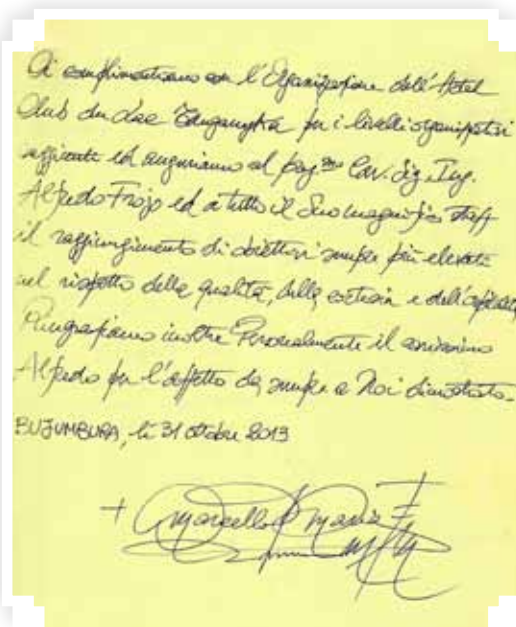 Ci complimentiamo con l'Organizzazione dell'Hotel
Club du Lac Tanganyka per i livelli organizzativi
ed auguriamo al Cav. Sig. Ing.
Alfredo Frojo ed a tutto il Suo magnifico staff
il raggiungimento di obiettivi sempre più elevati
nel rispetto della qualità, della cortesia e dell'ospitalità
Ringraziamo inoltre Personalmente il carissimo
Alfredo per l'affetto da sempre a Noi dimostrato.
BUJUMBURA, lì 31 ottobre 2013
+ Marcello Maria